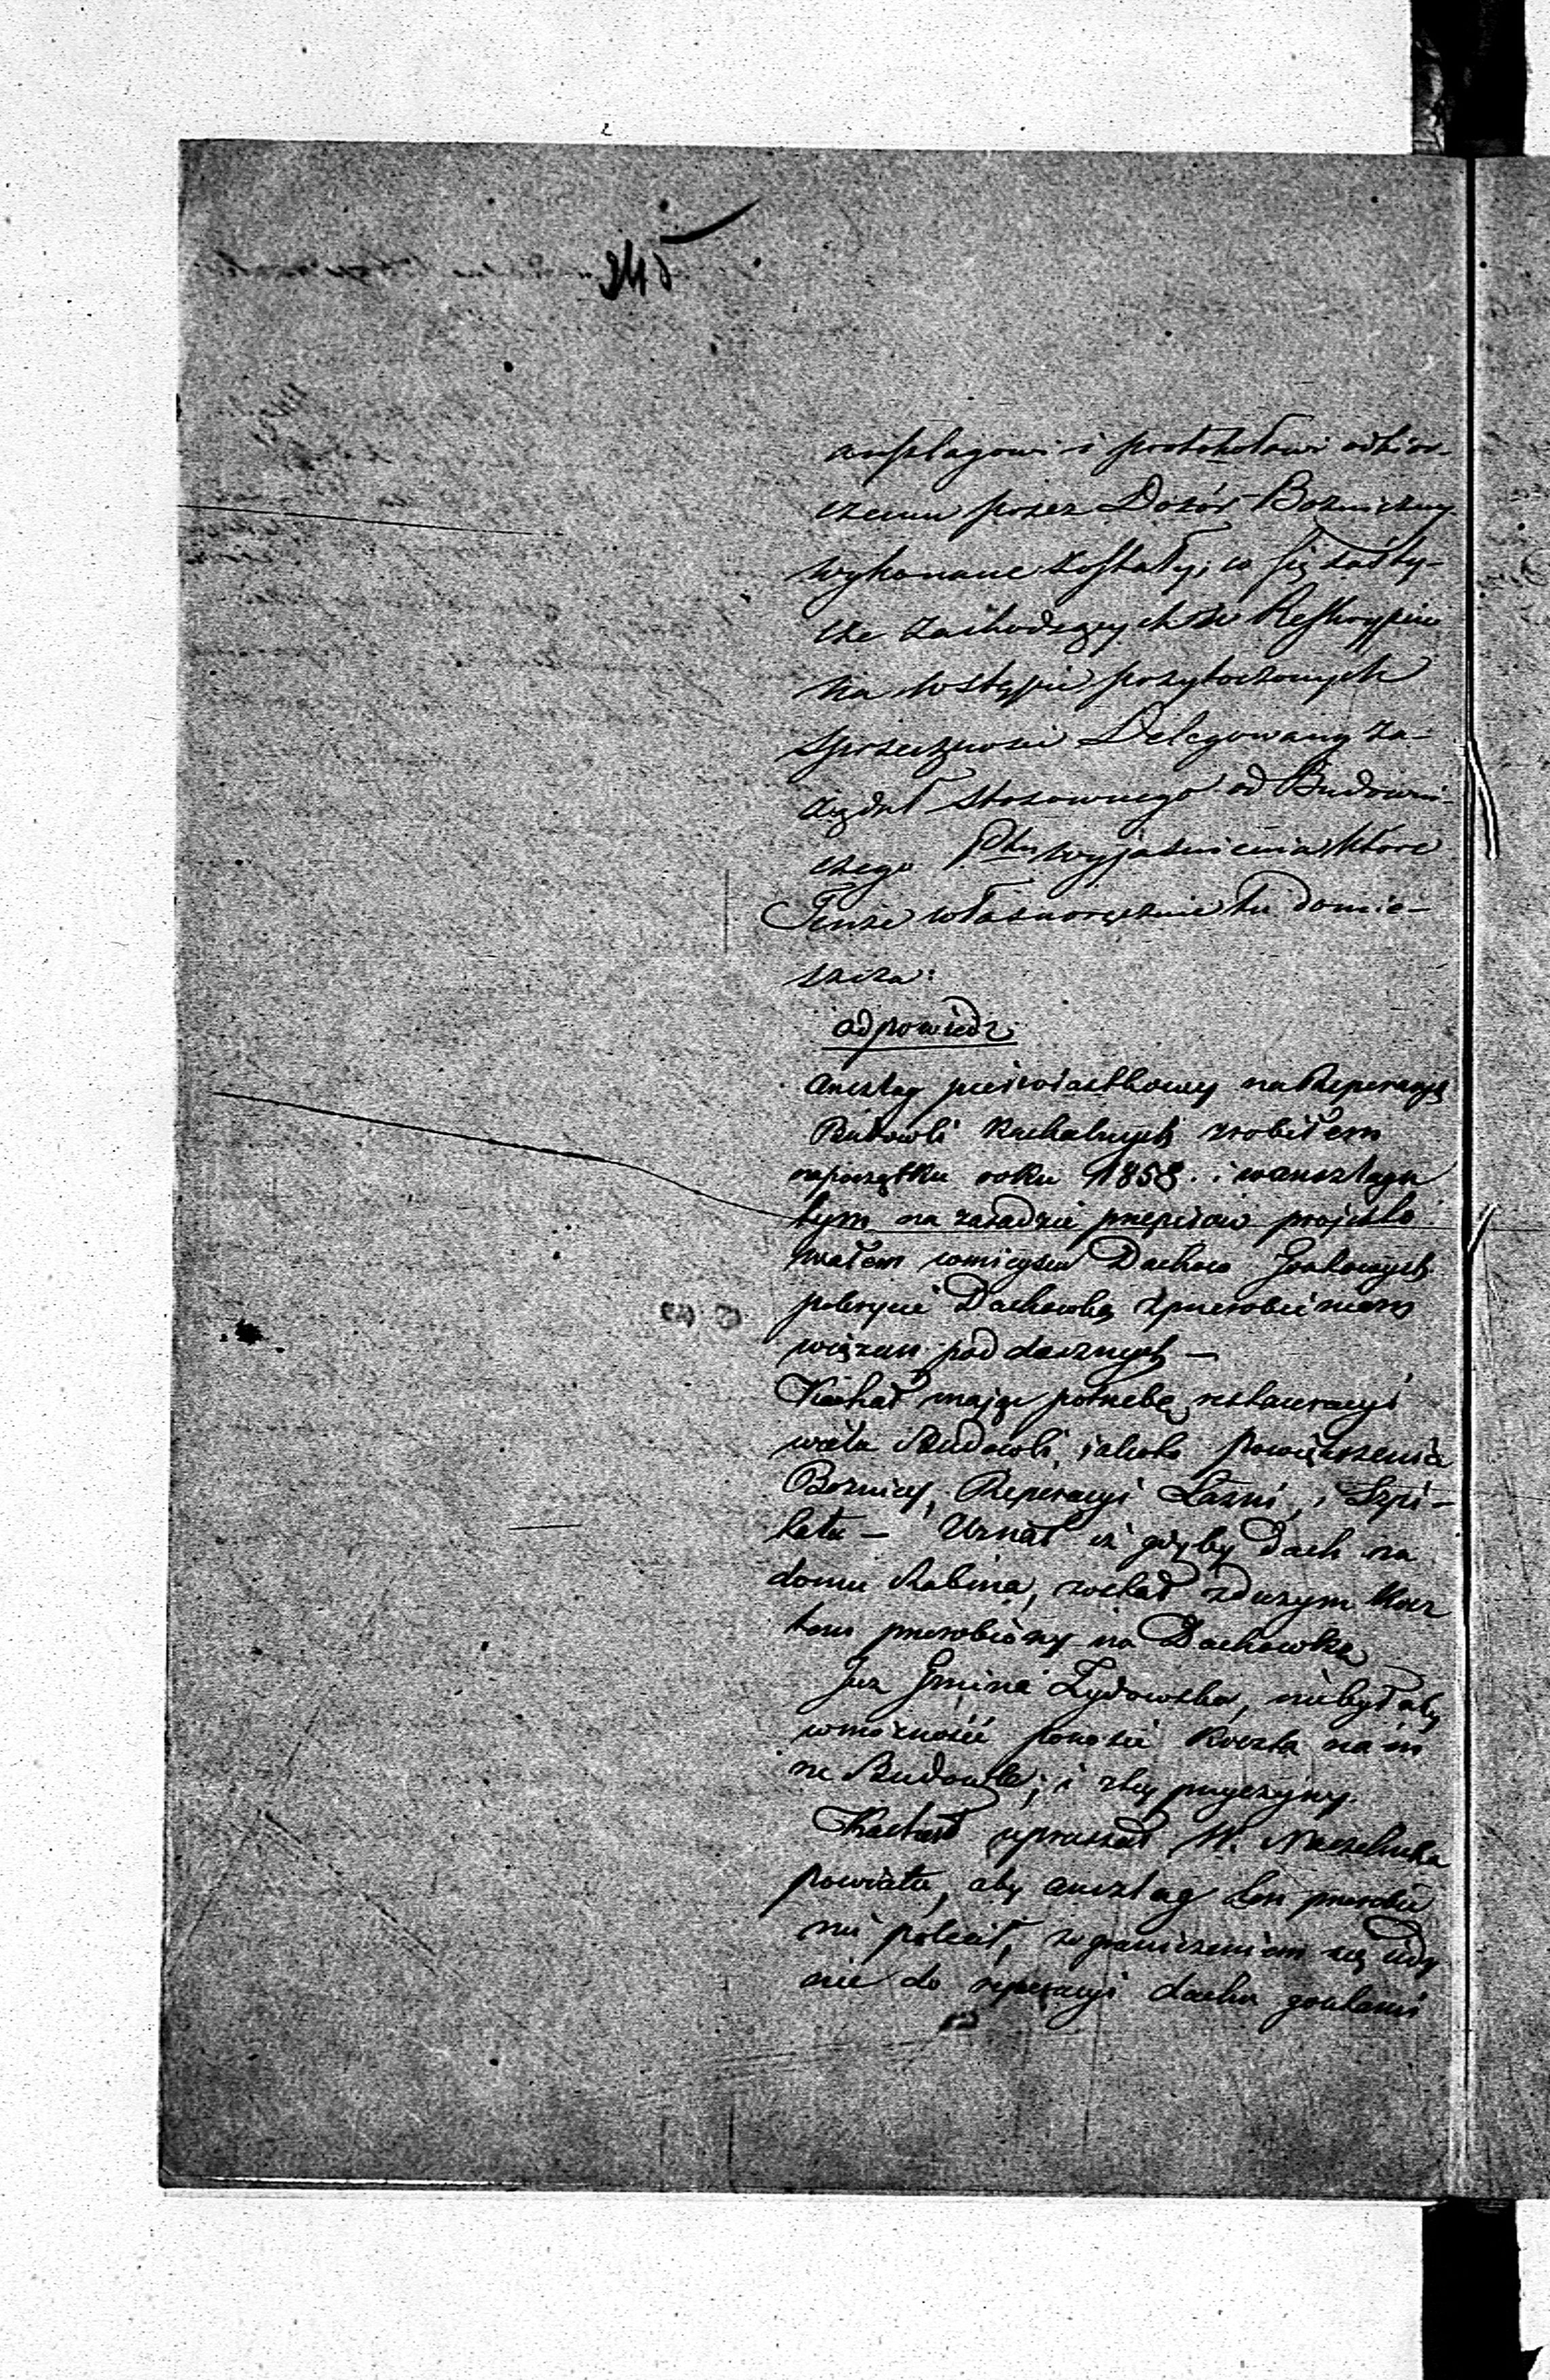 245
anszlagowi i protokołowi odbior-
czemu przez Dozór Bożniczny
wykonane zostały; co się zaś ty-
cze zachodzących w Reskrypcie
na wstępie przytoczonych
sprzeczności Delegowany za-
żądał stosownego od Budowni-
czego Ptu wyjaśnienia które
Tenże własnoręcznie tu domie-
szcza:
odpowiedz
Anszlag pierwiastkowy na Reperacyę
Budowli Kachalnych zrobiłem
napoczątku roku 1858. i wanszlagu
tym na zasadzie przepisów projekto
wałem wmiejscu Dachów Gontowych
pokrycie Dachowką zprzerobieniem
wiązań poddasznych —
Kachał mając potrzebę restauracyi
wielu Budowli, jakoto powiększenia
Boznicy, Reperacyi Łazni, i Szpi-
tala — Uznał iż gdyby Dach na
domu Rabina, został zdużym Kosz
tem przerobiony na Dachowkę
Juz Gmina Zydowska, niebyłaby
wmożności ponosić Koszta na in
ne Budowle; i ztej przyczyny.
Kachał upraszał W. Naczelnika
powiatu, aby anszlag ten przerobie
nie polecił, zograniczeniem się jedy
nie do reperacyi dachu gontami